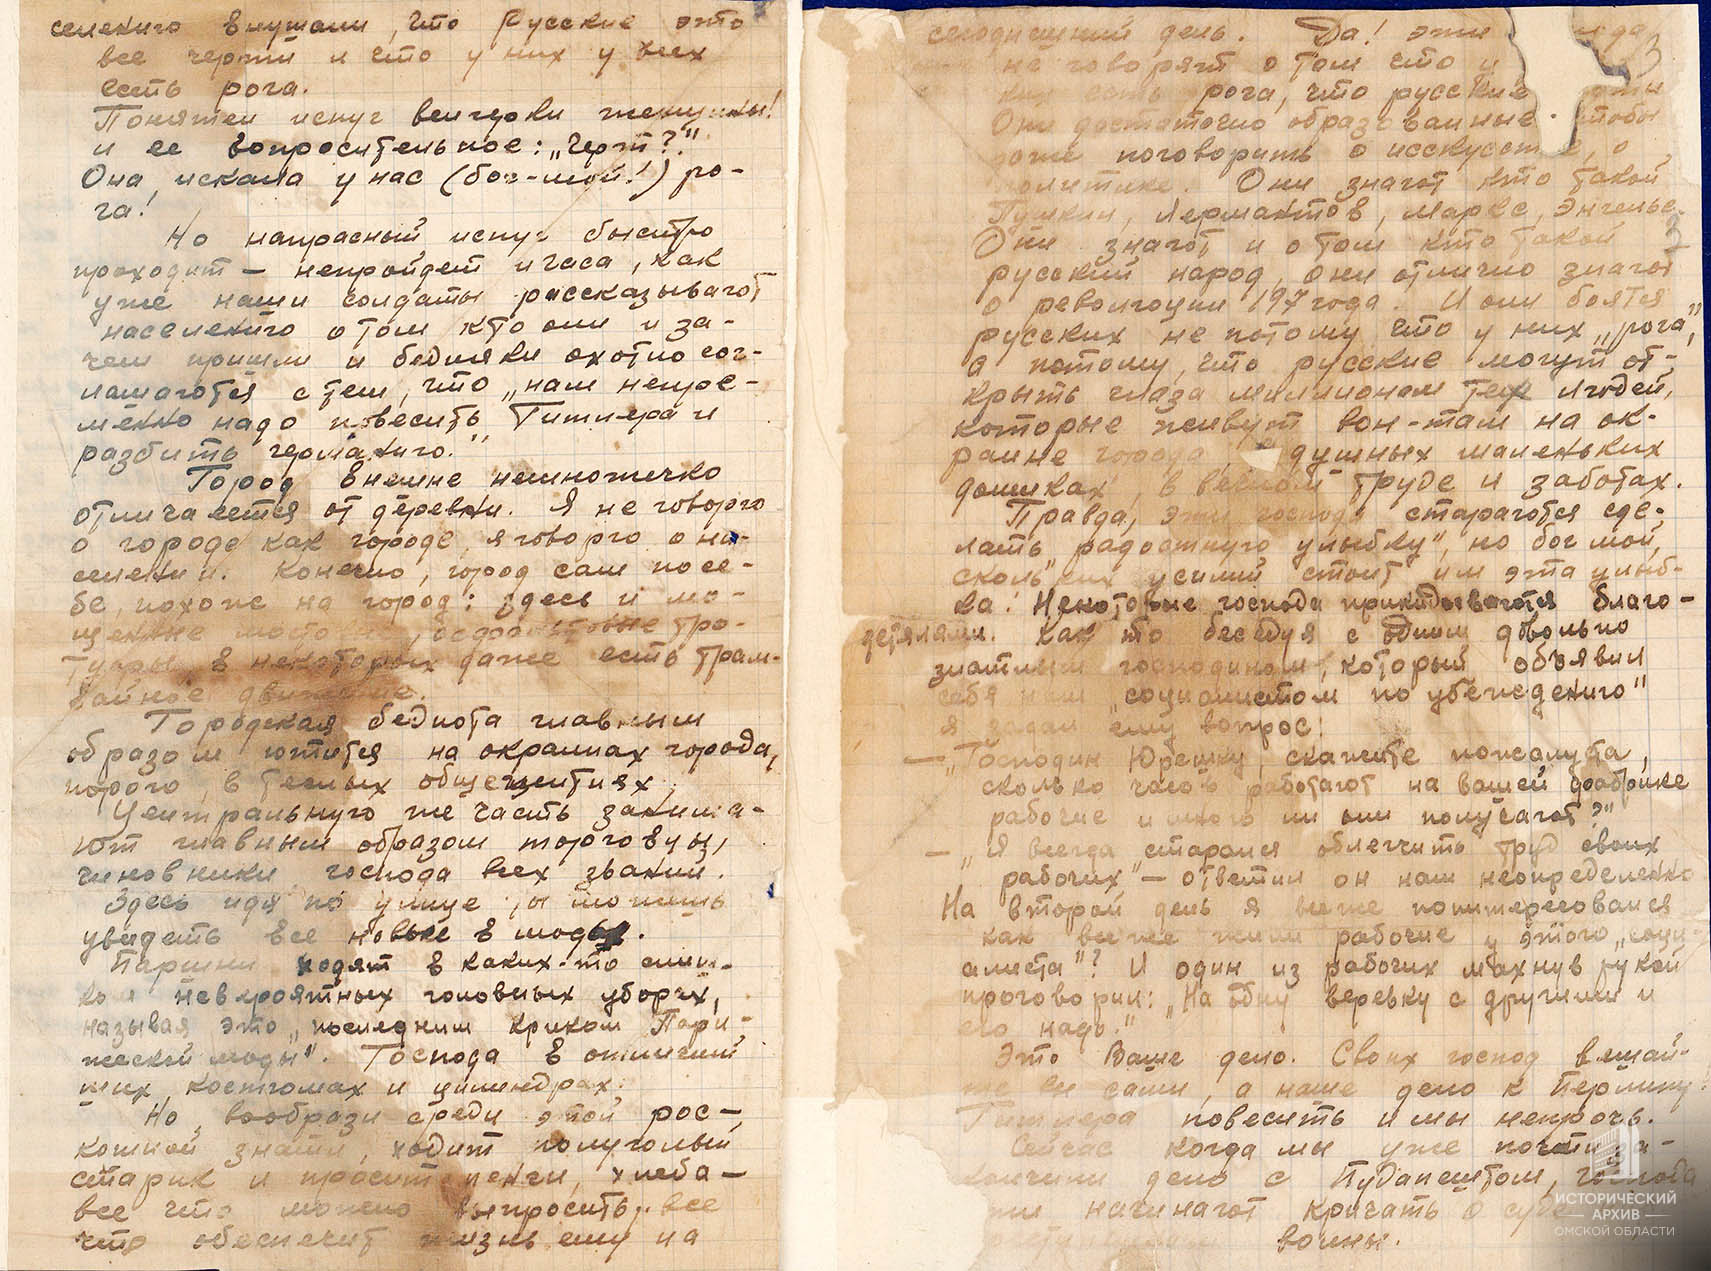 селению внушали, что Русские это
все черти и что у них у всех
есть рога.
Понятен испуг венгерки женщины!
и ее вопросительное: „Черт?".
Она искала у нас (бог-мой!) ро-
га!
Но напрасный испуг быстро
проходит — непройдет и часа, как
уже наши солдаты рассказывают
населению о том кто они и за-
чем пришли и бедняки охотно сог-
лашаются с тем, что „нам непре-
менно надо повесить Гитлера и
разбить германию."
Город внешне немножечко
отличается от деревни. Я не говорю
о городе как городе, я говорю о на-
селении. Конечно, город сам по се-
бе, похож на город: здесь и мо-
щенные мостовые, асфальтовые тро-
туары в некоторых даже есть трам-
вайное движение.
Городская беднота главным
образом ютится на окраинах города,
порою, в тесных общежитиях
Центральную же часть занима-
ют главным образом торговцы,
чиновники господа всех званий.
Здесь идя по улице ты можешь
увидеть все новые в моды.
Парни ходят в каких-то слиш-
ком невероятных головных уборах,
называя это „последним криком Пари-
жеской моды". Господа в отличий
ших костюмах и цилиндрах.
Но, вообрази среди этой рос-
кошной знати, ходит полуголый
старик и просит пенги, хлеба —
все что можно выпросить, все
что обеспечит жизнь ему на
сегоднишний день. Да! эти
не говорят о том что у
них есть рога, что русские
Они достаточно образованные. чтобы
даже поговорить о исскусстве, о
политике. Они знают кто такой
Пушкин, Лермактов, Маркс, Энгельс.
Они знают и о том кто такой
русский народ, они отлично знают
о революции 197 года. И они боятся
русских не потому что у них „рога",
а потому, что русские могут от-
крыть глаза миллионам тех людей,
которые живут вон-там на ок-
раине города, в душных маленьких
домиках, в вечном труде и заботах.
Правда, эти господа стараются сде-
лать „радостную улыбку", но бог мой,
сколь ких усилий стоит им эта улыб-
ка! Некоторые господа прикидываются благо-
детялями. Как то беседуя с одним довольно
знатным господином, который объявил
себя нам „социалистом по убеждению"
я задал ему вопрос:
— „Господин Юрешку, скажите пожалуйста,
сколько часов работают на вашей фабрике
рабочие и много ли они получают?"
— „Я всегда старался облегчить труд своих
рабочих" — ответил он нам неопределенно
На второй день я все же поинтересовался
как все же жили рабочие у этого „соци-
алиста"? И один из рабочих махнув рукой
проговорил: „На одну веревку с другими и
его надо."
Это Ваше дело. Своих господ вешай-
те вы сами, а наше дело к Берлину!
Гитлера повесить и мы непрочь.
Сейчас когда мы уже почти за-
кончили дело с Будапештом, господа
эти начинают кричать о суде
войны.
3
ИСТОРИЧЕСКИЙ
АРХИВ
ОМСКОЙ ОБЛАСТИ